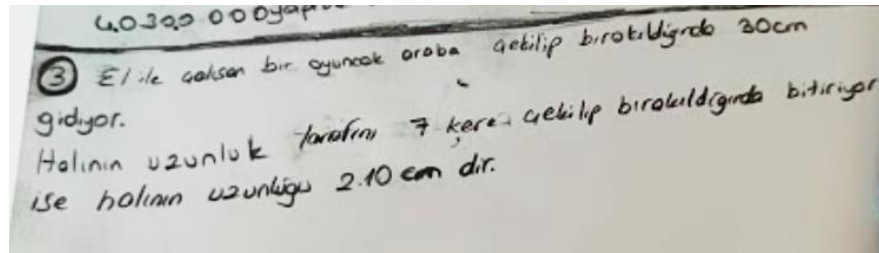 4.030,000 yap
③ El ile çalışan bir oyuncak araba çekilip bırakıldığında 30cm
gidiyor.
Halının uzunluk tarafını 7 kere çekilip bırakıldığında bitiriyor
ise halının uzunluğu 2.10 cm dir.